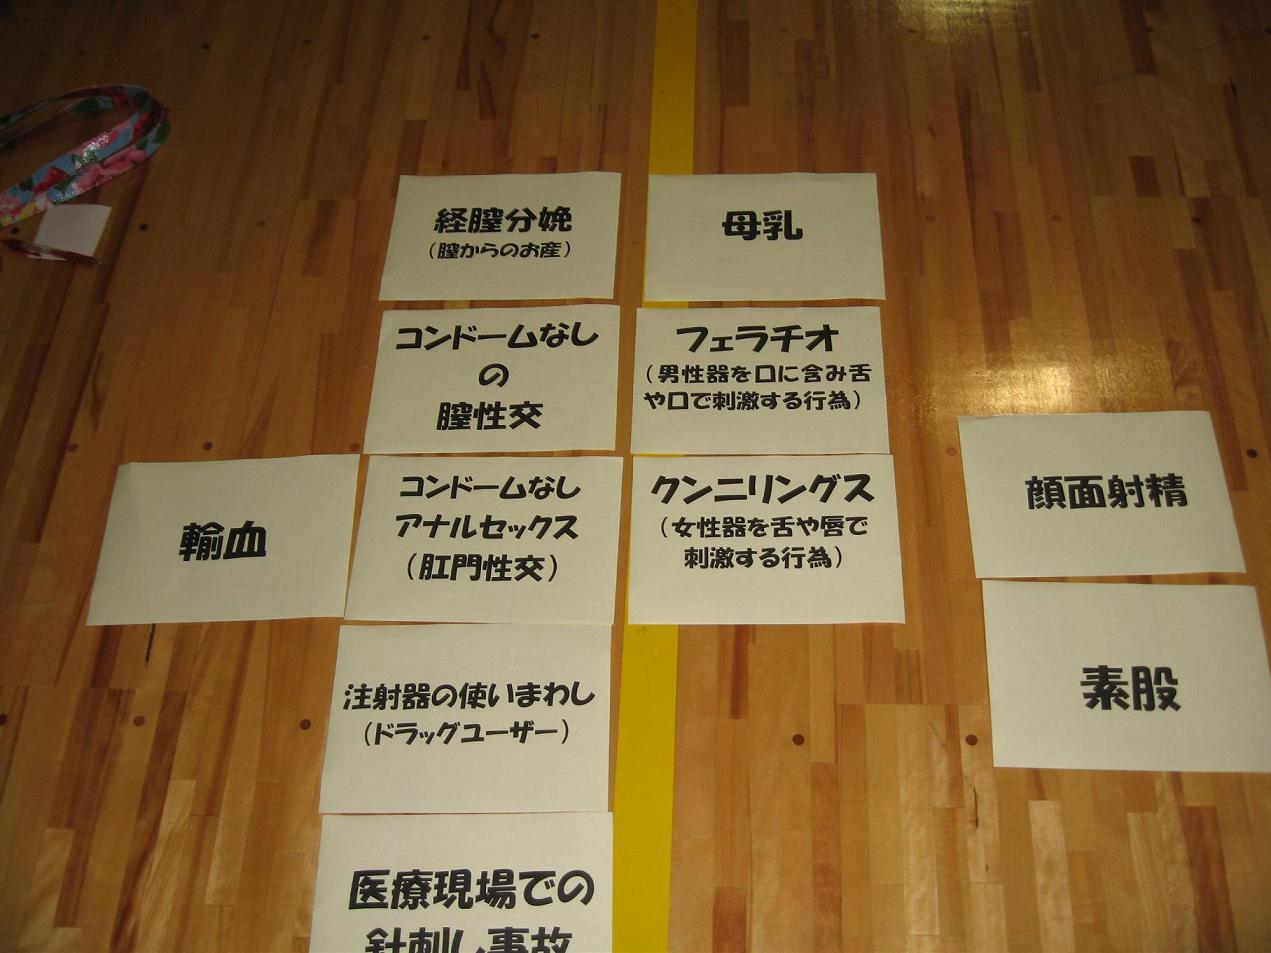 経膣分娩
(膣からのお産)
母乳
コンドームなし
の
膣性交
フェラチオ
(男性器を口に含み舌
や口で刺激する行為)
輸血
コンドームなし
アナルセックス
(肛門性交)
クンニリングス
(女性器を舌や唇で
刺激する行為)
顔面射精
素股
注射器の使いまわし
(ドラッグユーザー)
医療現場での
針刺し事故